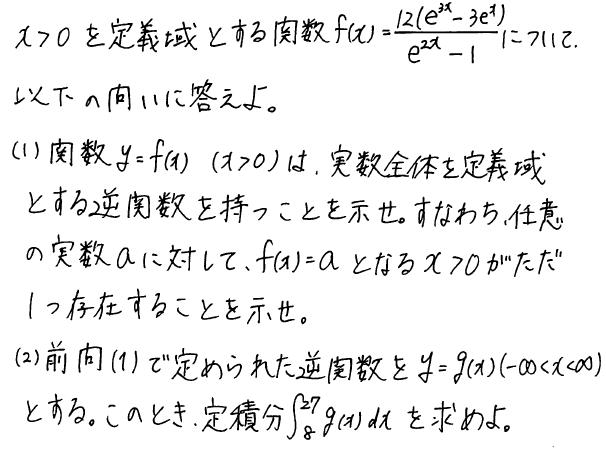 x>0 を定義域とする関数 f(x)=12(e^{3x}-3e^{x})/(e^{2x}-1) について、
以下の問いに答えよ。
(1) 関数 y=f(x) (x>0) は、実数全体を定義域
とする逆関数を持つことを示せ。すなわち、任意
の実数 a に対して、f(x)=a となる x>0 がただ
1つ存在することを示せ。
(2) 前問 (1) で定められた逆関数を y=g(x) (-∞<x<∞)
とする。このとき、定積分 ∫_{8}^{27} g(x) dx を求めよ。